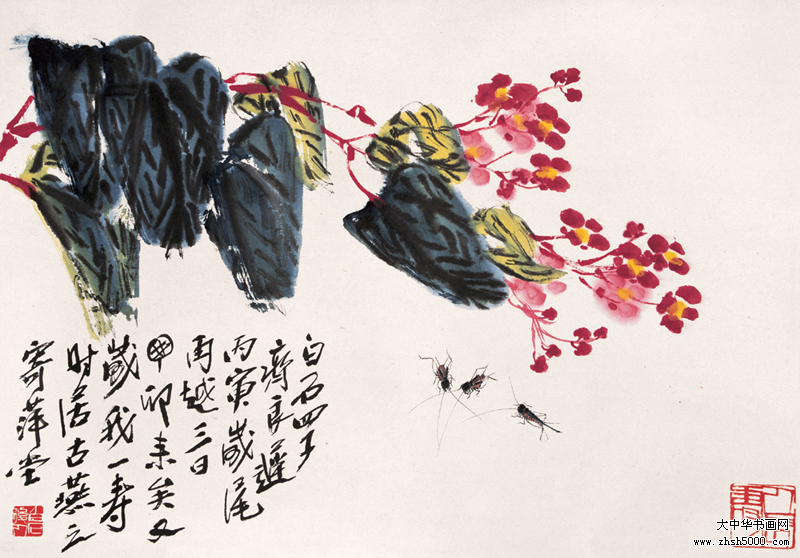 白石四子
齊良遲
丙寅歲尾
再越三日
卯来矣又
歲我一壽
时居古燕之
寄萍堂
大中华书画网
www.zhsh5000.com